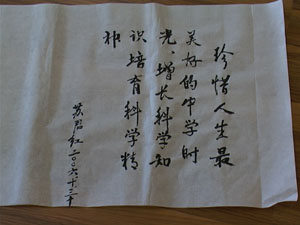 珍惜人生最
美好的中学时
光、增长科学知
识培育科学精
神
二〇〇六.十二.十